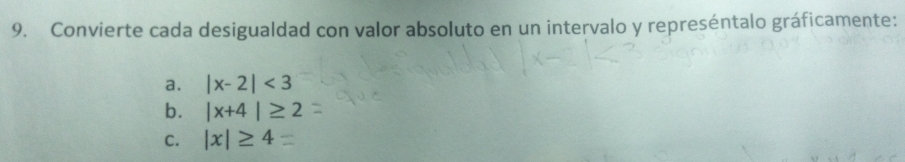 9. Convierte cada desigualdad con valor absoluto en un intervalo y represéntalo gráficamente:
a. |x- 2| < 3
b. |x+4 | ≥ 2 =
c. |x| ≥ 4 =